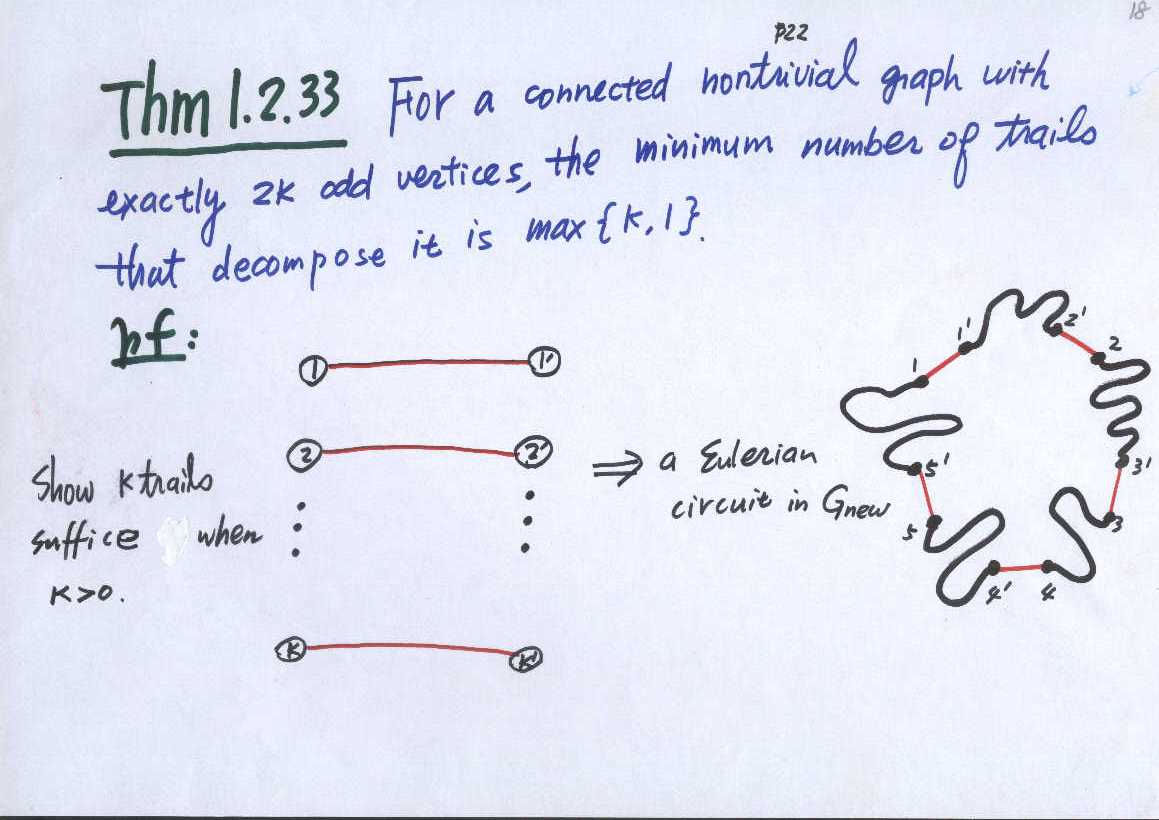 18
p22
Thm 1.2.33 For a connected nontrivial graph with
exactly 2k odd vertices, the minimum number of trails
that decompose it is max {k, 1}.
pf:
1 1'
2 2'
Show k trails
suffice when
k>0.
k k'
⇒ a Eulerian
circuit in Gnew
1 1' 2' 2
5' 3'
5 3
4' 4